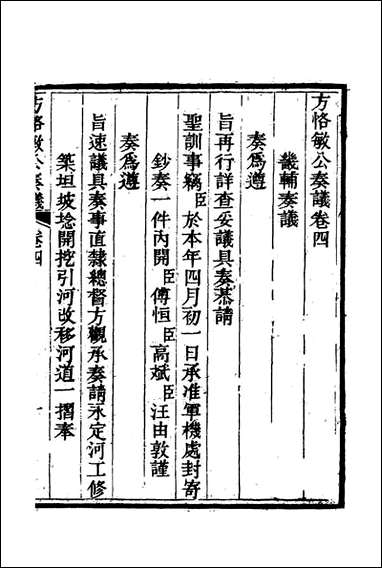 方恪敏公奏議卷四
畿輔奏議
奏為遵
旨再行詳查妥議具奏恭請
聖訓事竊臣於本年四月初一日承准軍機處封寄
鈔奏一件內開臣傅恒臣高斌臣汪由敦謹
奏為遵
旨速議具奏事直隸總督方觀承奏請永定河工修
築坦坡埝開挖引河改移河道一摺奉
方恪敏公奏議 卷四 一